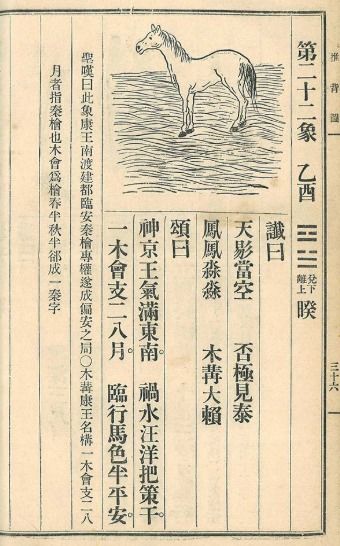 推背圖
三十六
第二十二象 乙酉 ䷥ 兌下離上 睽
讖曰
天影當空 否極見泰
鳳鳳淼淼 木冓大賴
頌曰
神京王氣滿東南。 禍水汪洋把策干。
一木會支二八月。 臨行馬色半平安。
聖嘆曰此象康王南渡建都臨安秦檜專權遂成偏安之局○木冓康王名構一木會支二八
月者指秦檜也木會爲檜春半秋半郤成一秦字